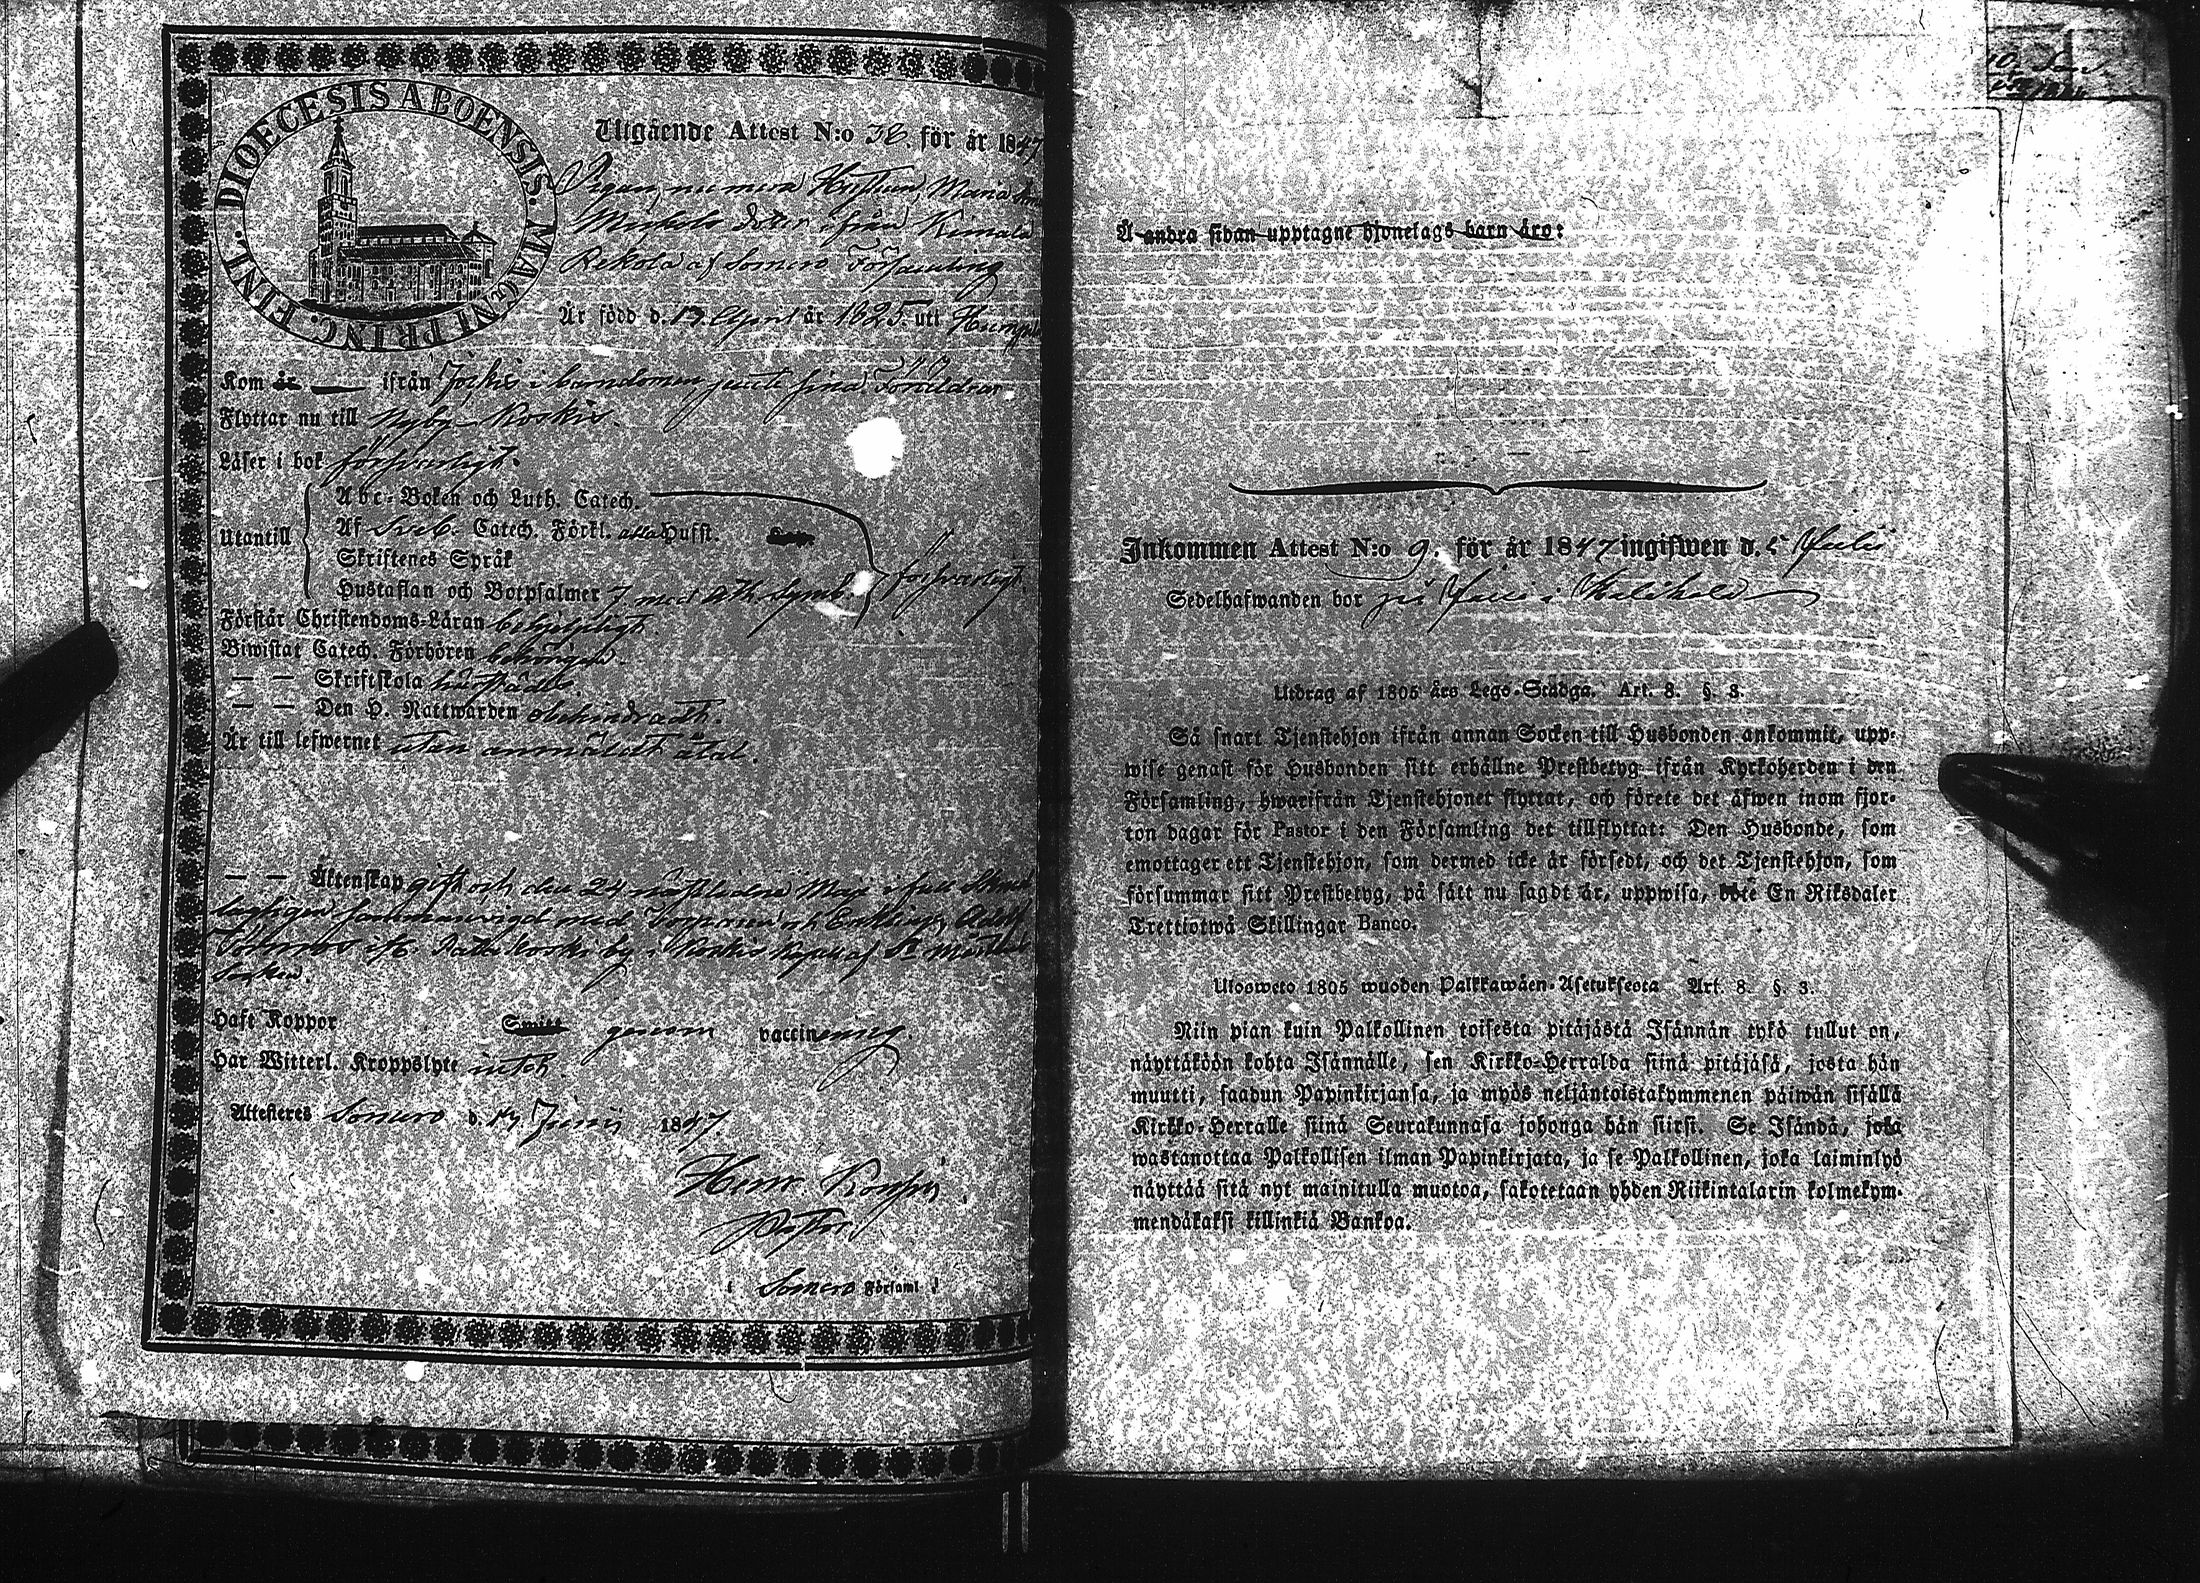 DIOECESIS ABOENSIS. MAGNI PRINC. FINL.
Utgående Attest N:o 38. för år 1847
Pigan, nu mera Hustrun, Maria
Michels dotter ifrån Kimala
Rekola af Somero Församling
Är född d. 17. April år 1825. uti
Kom år — ifrån Jockis i barndomen jemte sina Föräldrar
Flyttar nu till Nyby Koskis.
Läser i bok försvarligt.
Utantill
Abc-Boken och Luth. Catech.
Af Sveb. Catech. Förkl. alla Hufst.
Skriftenes Språk
Hustaflan och Botpsalmer 7 med Ath. Symb. försvarligt
Förstår Christendoms-Läran behjelpligt.
Biwistat Catech. Förhören behörigen.
— — Skriftskola härstädes.
— — Den H. Nattwarden obehindradt.
Är till lefwernet utan anmäldt åtal.
— — Äktenskap gift och den 24 nästledne Maji i
sammanvigd med Torparen och Enklingen,
by i Koskis af St Mårtens
Socken.
Haft Koppor Smitt genom vaccinering.
Har Witterl. Kroppslyte intet.
Attesteres Somero d. 17 Junii 1847.
Henr.
Pastor.
i Somero Församl.
Å andra sidan upptagne hjonelags barn äro:
Inkommen Attest N:o 9. för år 1847 ingifwen d. 5 Julii
Sedelhafwanden bor på i
Utdrag af 1805 års Lego-Stadga. Art. 8. §. 3.
Så snart Tjenstehjon ifrån annan Socken till Husbonden ankommit, upp-
wise genast för Husbonden sitt erhållne Prestbetyg ifrån Kyrkoherden i den
Församling, hwarifrån Tjenstehjonet flyttat, och förete det äfwen inom fjor-
ton dagar för Pastor i den Församling det tillflyttat: Den Husbonde, som
emottager ett Tjenstehjon, som dermed icke är försedt, och det Tjenstehjon, som
försummar sitt Prestbetyg, på sätt nu sagdt är, uppwisa, böte En Riksdaler
Trettiotwå Skillingar Banco.
Ulosweto 1805 wuoden Palkkawäen-Asetuksesta Art. 8. §. 3.
Niin pian kuin Palkollinen toisesta pitäjästä Isännän tykö tullut on,
näyttäköön kohta Isännälle, sen Kirkko-Herralda siinä pitäjäsä, josta hän
muutti, saadun Papinkirjansa, ja myös neljäntoistakymmenen päiwän sisällä
Kirkko-Herralle siinä Seurakunnasa johonga hän siirsi. Se Isändä, joka
wastanottaa Palkollisen ilman Papinkirjata, ja se Palkollinen, joka laiminlyö
näyttää sitä nyt mainitulla muotoa, sakotetaan yhden Riikintalarin kolmekym-
mendäkaksi killinkiä Bankoa.